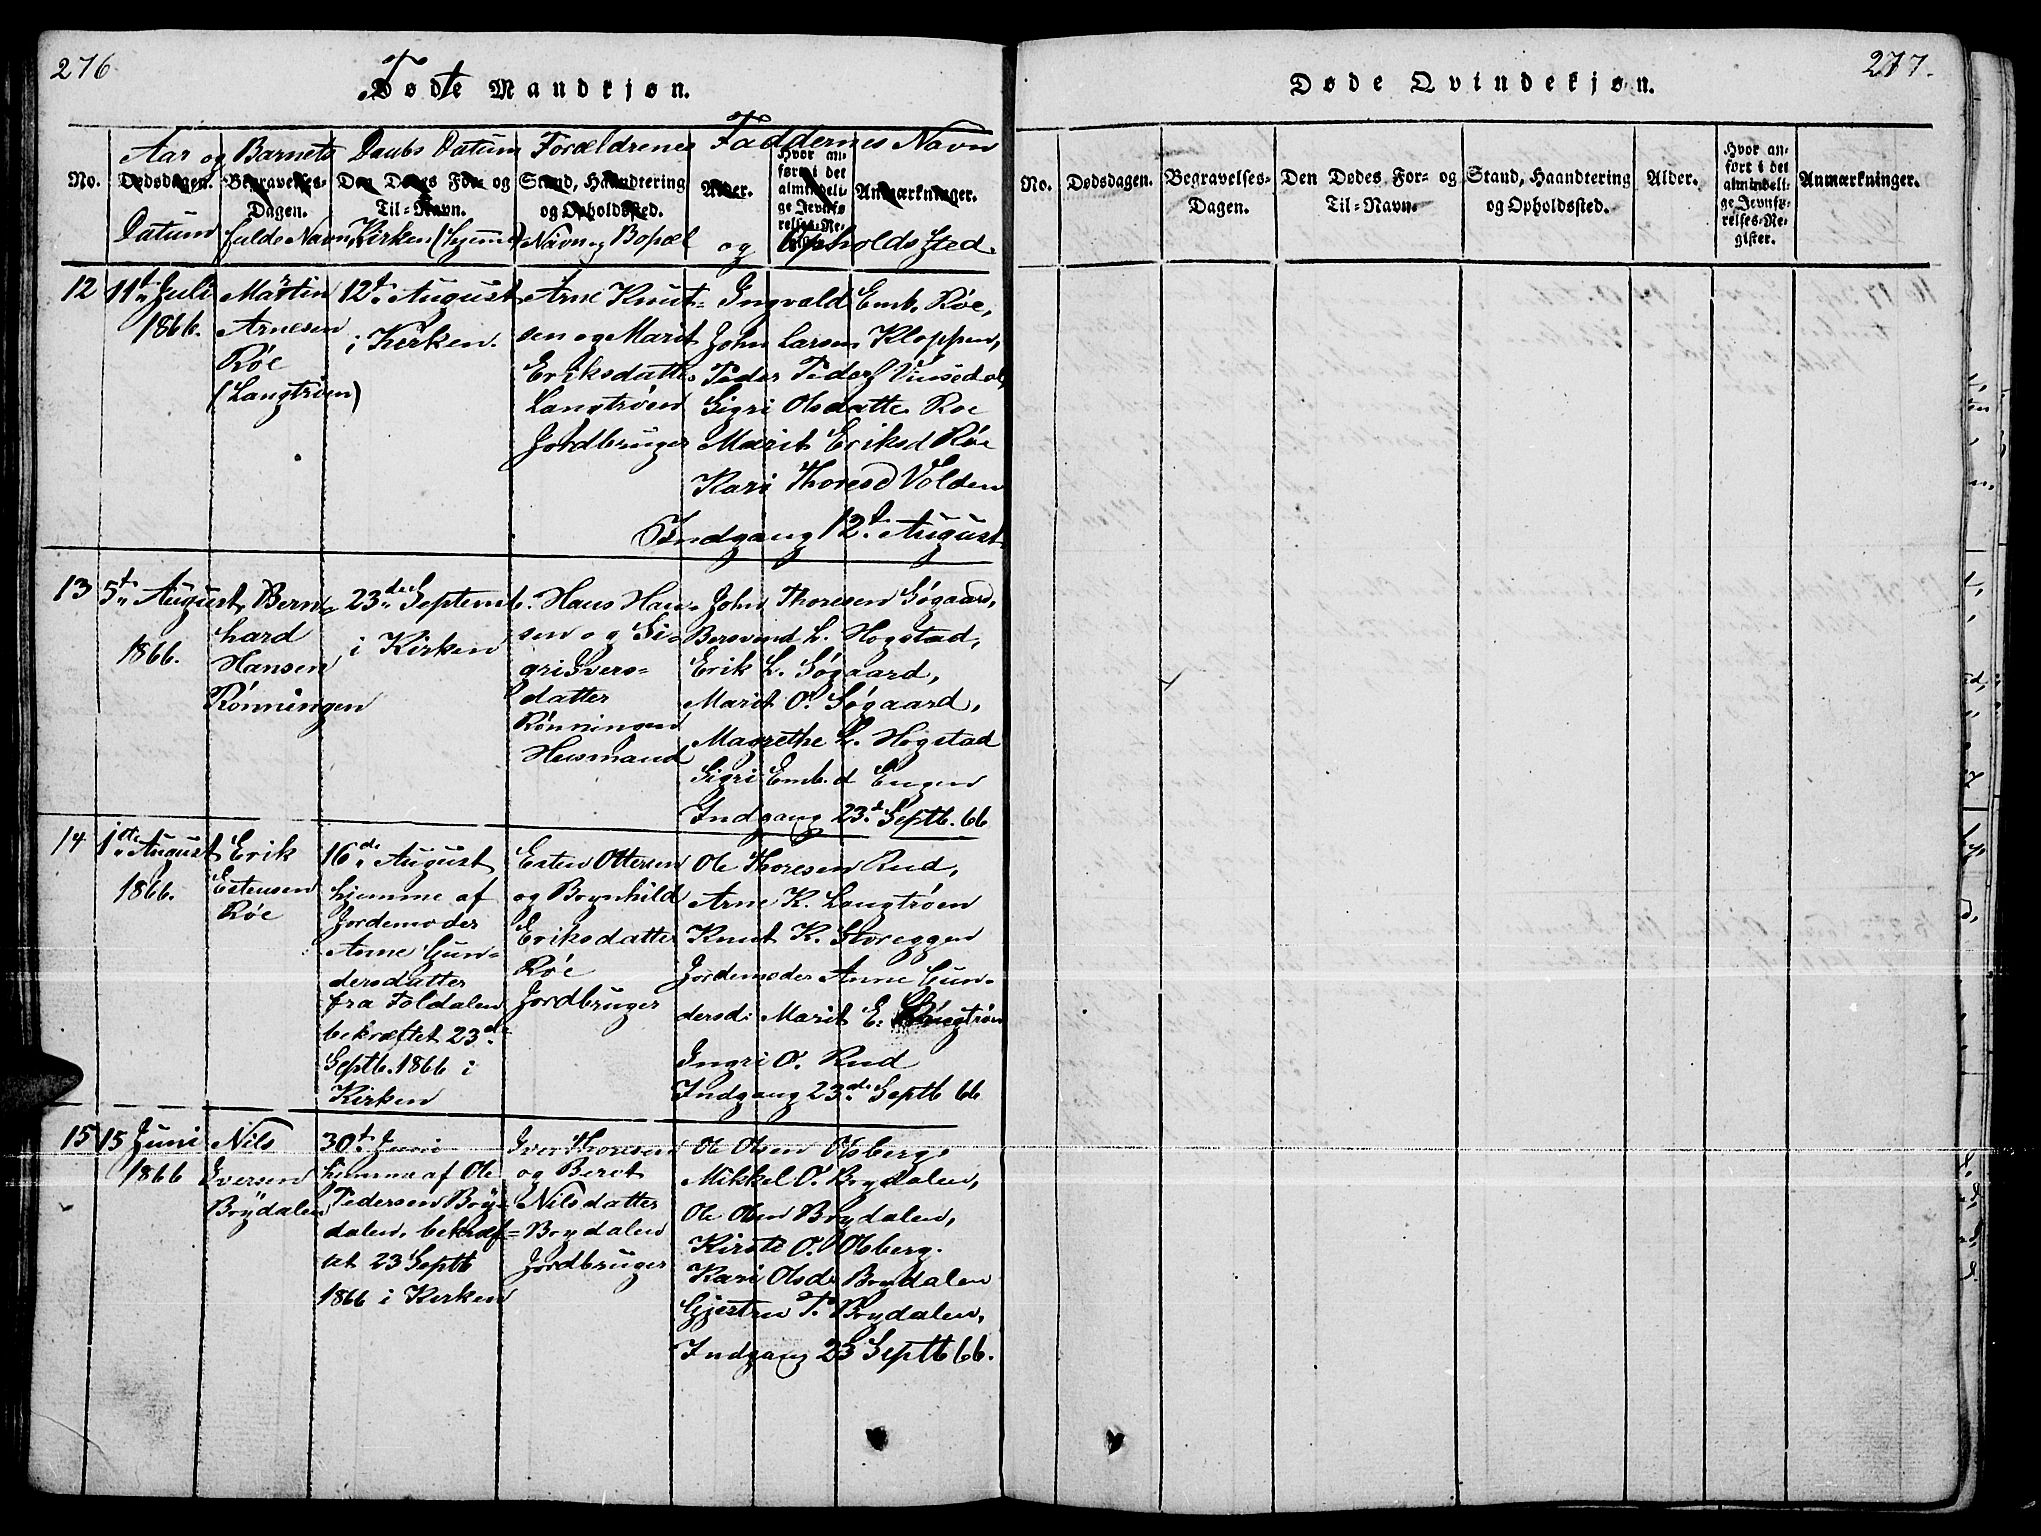 276
Fødte Mandkjøn.
Aar og Datum
Barnets fulde Navn
Daabs Datum Kirken (hjemme)
Forældrenes Navn og Bopæl
Faddernes Navn og Opholds sted.
No.
Dødsdagen.
Begravelses-
Dagen.
Den Dødes For- og
Til-Navn.
Stand, Haandtering
og Opholdssted.
Alder.
Hvor an-
ført i det
almindeli-
ge Jevnfø-
relses-Re-
gister.
Anmærkninger.
12
11te Juli
1866.
Martin
Arnesen
Røe
(Langtrøen)
12te August
i Kirken.
Arne Knut-
sen og Marit
Eriksdatter
Langtrøen
Jordbruger
Ingvald Emb. Røe,
John Larsen Kloppen,
Peder Peders Vinsedal,
Sigri Olsdatter Roe
Marit Eriksd Røe
Kari Thoresd Volden
Indgang 12te August
13
5te August
1866.
Bern-
hard
Hansen
Rønningen
23de Septemb.
i Kirken
Hans Han-
sen og Si-
gri Ivers-
datter
Rønningen
Husmand
John Thoresen Søgaard,
Bersvend L. Hogstad,
Erik L. Søgaard,
Marit O. Søgaard,
Magrethe L. Høgstad
Sigri Emb. d Engen
Indgang 23de Septb. 66
14
1ste August
1866.
Erik
Estensen
Røe
16de August
hjemme af
Jordemoder
Anne Gun-
dersdatter
fra Foldalen
bekræftet 23de
Septb. 1866 i
Kirken
Esten Ottersen
og Brynhild
Eriksdatter
Røe
Jordbruger
Ole Thoresen Rud,
Arne K. Langtrøen
Knut K. Storeggen
Jordemoder Anne Gun-
dersd: Marit E. Langtrøen
Ingri O. Rud
Indgang 23de Septb 66
15
15 Juni
1866
Nils
Iversen
Brydalen
30te Juni
hjemme af Ole
Pedersen Bry-
dalen, bekræf-
tet 23 Septb
1866 i Kirken
Iver Thoresen
og Beret
Nilsdatter
Brydalen
Jordbruger
Ole Olsen Olsberg,
Mikkel O. Brydalen,
Ole Olsen Brydalen,
Kirsti O. Olsberg.
Kari Olsd. Brydalen
Gjertru T. Brydalen,
Indgang 23 Septb 66.
277.
Døde Qvindekjøn.
No.
Dødsdagen.
Begravelses-
Dagen.
Den Dødes For- og
Til-Navn.
Stand, Haandtering
og Opholdssted.
Alder.
Hvor an-
ført i det
almindeli-
ge Jevnfø-
relses-Re-
gister.
Anmærkninger.